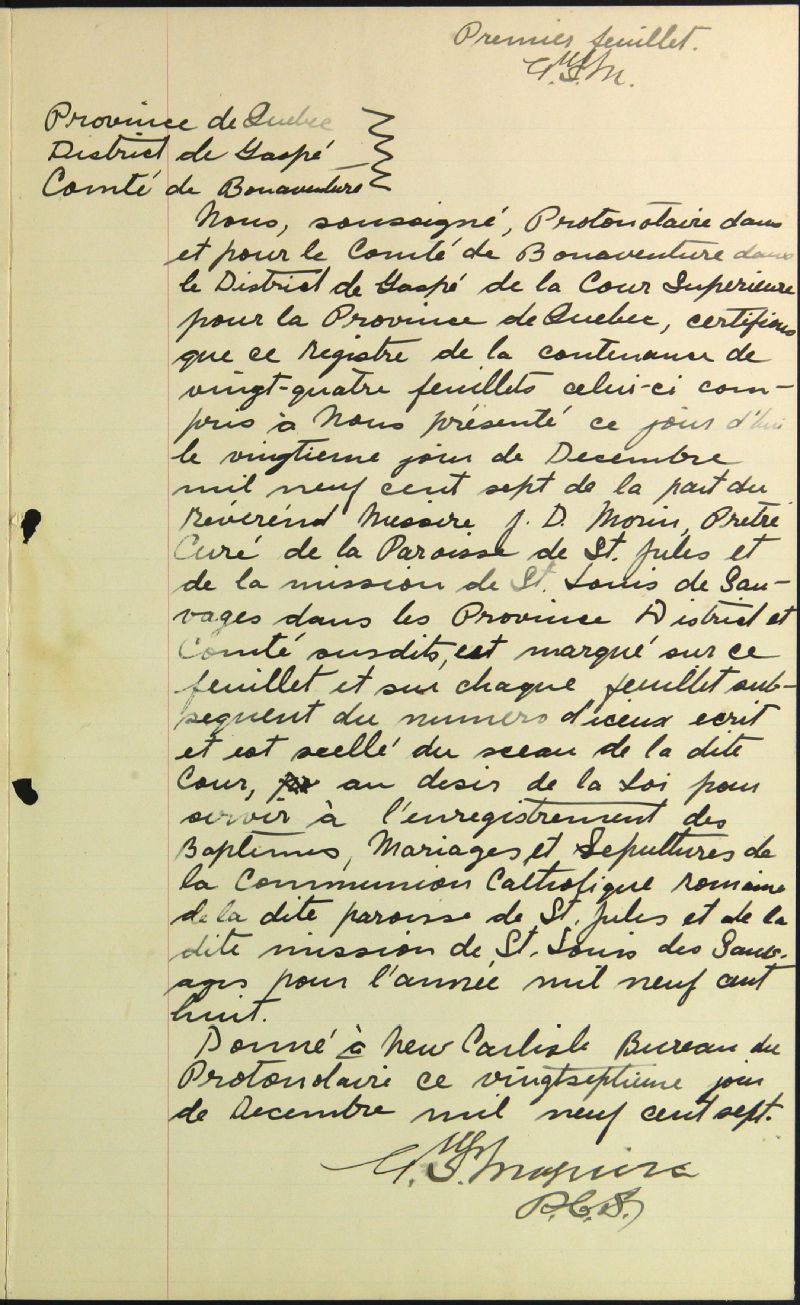 Premier feuillet.
W.G.M.
Province de Quebec
District de Gaspé
Comté de Bonaventure
Nous, soussigné, Protonotaire dans
et pour le Comté de Bonaventure dans
le District de Gaspé de la Cour Superieure
pour la Province de Quebec, certifions
que ce Registre de la contenance de
vingt-quatre feuillets celui-ci com-
pris à Nous présenté ce jour d'hui
le vingtieme jour de Decembre
mil neuf cent sept de la part du
Révérénd Messire J. D. Morin, Prêtre
Curé de la Paroisse de St. Jules et
de la mission de St. Louis de Sau-
vages dans les Province District et
Comté susdits, est marqué sur ce
feuillet et sur chaque feuillet sub-
sequent du numero d'iceux ecrit
et est scellé du sceau de la dite
Cour, au desir de la Loi pour
servir à l'enregistrement des
Baptêmes, Mariages et Sepultures de
la Communion Catholique Romaine
de la dite paroisse de St. Jules et de la
dite mission de St. Louis des Sauv-
ages pour l'année mil neuf cent
huit.
Donné à New Carlisle Bureau du
Protonotaire ce vingtseptieme jour
de Decembre mil neuf cent sept.
P.C.S.